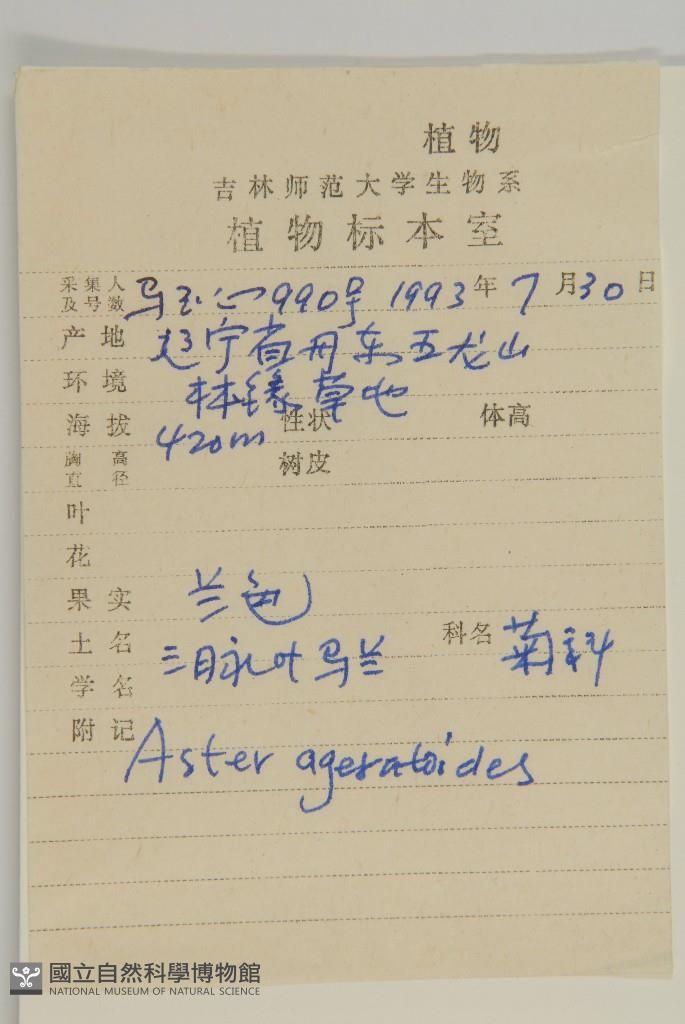 植物
吉林师范大学生物系
植物标本室
采集人及号数 马玉心 990号 1993年7月30日
产地 辽宁省丹东五龙山
环境 林缘草地
海拔 420m 性状 体高
胸高直径 树皮
叶
花
果实 兰色
土名 三脉叶马兰 科名 菊科
学名
附记 Aster ageratoides
國立自然科學博物館
NATIONAL MUSEUM OF NATURAL SCIENCE